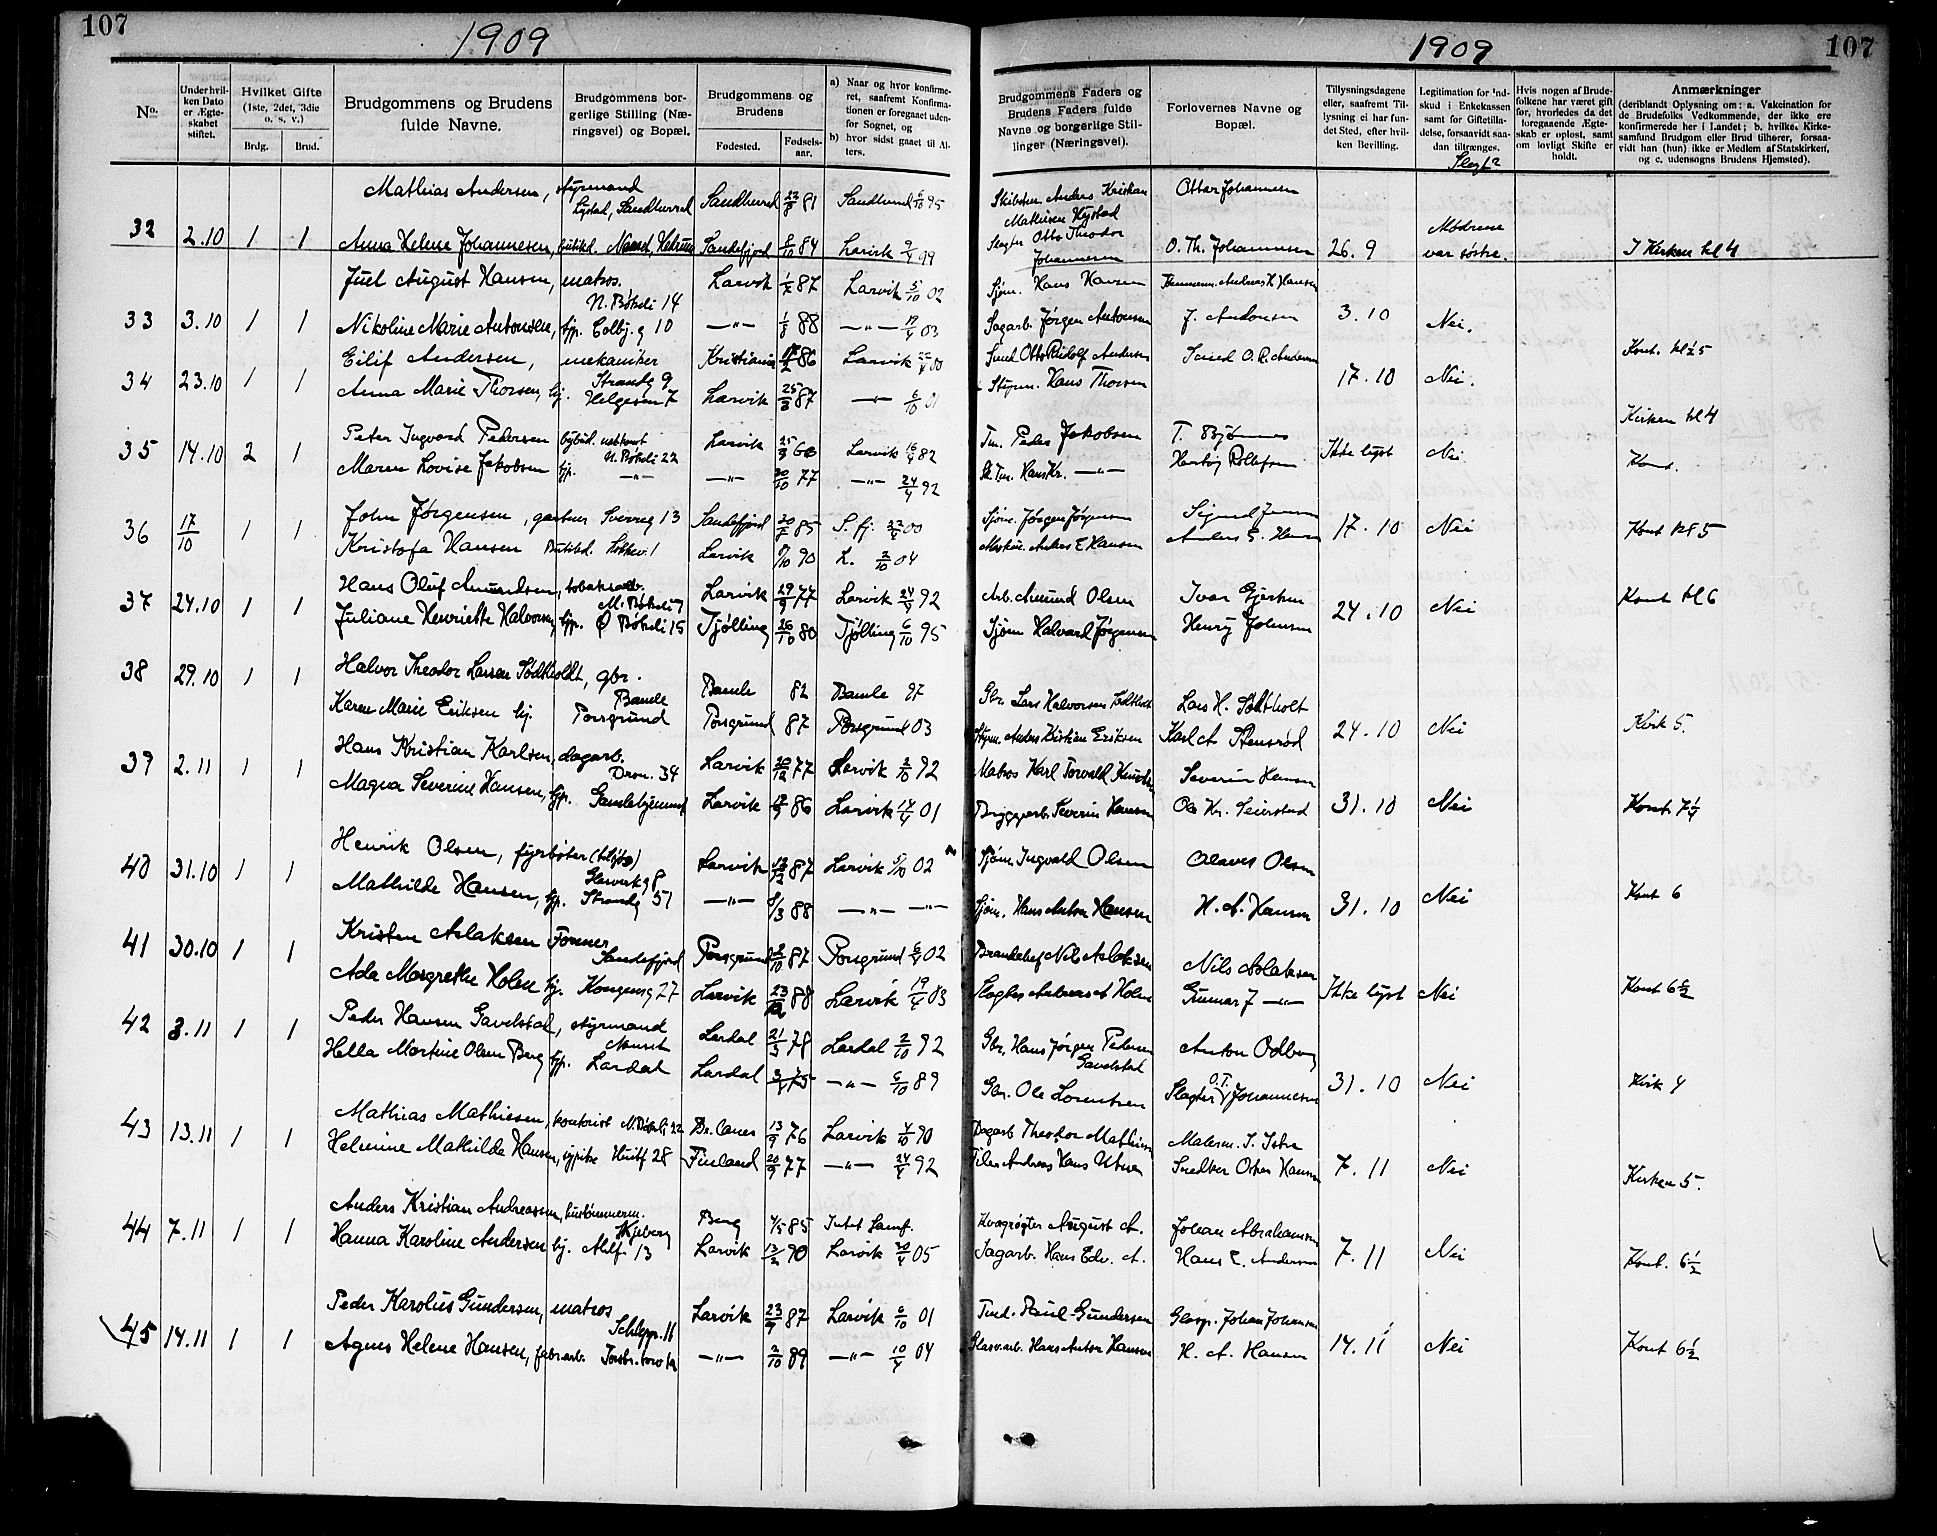 107
1909
No.
Under hvilken Dato er Ægteskabet stiftet.
Hvilket Gifte (1ste, 2det, 3die o. s. v.)
Brdg.
Brud.
Brudgommens og Brudens fulde Navne.
Brudgommens borgerlige Stilling (Næringsvei) og Bopæl.
Brudgommens og Brudens
Fødested.
Fødselsaar.
a) Naar og hvor konfirmeret, saafremt Konfirmationen er foregaaet udenfor Sognet, og
b) hvor sidst gaaet til Alters.
1909
107
Brudgommens Faders og Brudens Faders fulde Navne og borgerlige Stillinger (Næringsvei).
Forlovernes Navne og Bopæl.
Tillysningsdagene eller, saafremt Tillysning ei har fundet Sted, efter hvilken Bevilling.
Legitimation for Indskud i Enkekassen samt for Giftetilladelse, forsaavidt saadan tiltrænges.
Slegt?
Hvis nogen af Brudefolkene har været gift før, hvorledes da det foregaaende Ægteskab er opløst, samt om lovligt Skifte er holdt.
Anmærkninger
(deriblandt Oplysning om: a. Vakcination for de Brudefolks Vedkommende, der ikke ere konfirmerede her i Landet; b. hvilke Kirkesamfund Brudgom eller Brud tilhører, forsaavidt han (hun) ikke er Medlem af Statskirken, og c. udensogns Brudens Hjemsted).
Mathias Andersen, styrmand Sandherred 22/8 81 Sandherred 6/10 95 Anders Kristian Mathisen Hystad Ottar Johannesen
32 2.10 1 1 Anna Helene Johannesen, Sandefjord 8/10 84 Larvik 9/4 99 Slagter Otto Theodor Johannesen O. Th. Johannesen 26.9 Mødrene var søstre. I Kirken kl 4
Juel August Hansen, matros. N. Bøkeli 14 Larvik 1/2 87 Larvik 5/10 02 Sjøm. Hans Hansen Andreas H. Hansen
33 3.10 1 1 Nikoline Marie Antonsen, hjp. Colbj.g 10 —"— 1/8 88 —"— 19/4 03 Sagarb. Jørgen Antonsen J. Antonsen 3.10 Nei. Kont. kl ½5
Eilif Andersen, mekaniker Strandg 9 Kristiania 86 Larvik 22/4 00 Smed Otto Rudolf Andersen Smed O. R. Andersen
34 23.10 1 1 Anna Marie Thorsen, hj. Helgesen 7 Larvik 25/8 87 —"— 6/10 01 Styrm. Hans Thorsen 17.10 Nei. Kirken kl 4
35 14.10 2 1 Peter Ingvard Pedersen N. Bøkeli 22 Larvik 25/3 60 Larvik 16/4 82 Tm. Peder Jakobsen T. Bjønnes Ikke lyst Nei Kont.
Maren Lovise Jakobsen hjp. —"— —"— 20/10 77 —"— 24/4 92 Hans Kr. —"—
36 17/10 1 1 John Jørgensen, gartner Sverreg 13 Sandefjord 20/8 85 S. fj. 22/4 00 Sjøm. Jørgen Jørgensen 17.10 Nei Kont kl 5
Kristofa Hansen Larvik 8/10 90 L. 2/10 04 Anders E Hansen Anders E. Hansen
37 24.10 1 1 Hans Oluf Amundsen, M. Bøkeli 7 Larvik 29/9 77 Larvik 24/4 92 Arb. Amund Olsen Ivar Gjertsen 24.10 Nei Kont kl 6
Juliane Henriette Halvorsen, hjp. Ø Bøkeli 15 Tjølling 26/10 80 Tjølling 6/10 95 Sjøm Halvard Jørgensen Henry Johnsen
38 29.10 1 1 Halvor Theodor Larsen Södtholdt, gbr. Bamle Bamle 82 Bamle 97 Gbr. Lars Halvorsen Södtholt Lars H. Södtholt
Karen Marie Eriksen hj. Porsgrund Porsgrund 87 Porsgrund 03 Styrm. Anders Kristian Eriksen Karl A Stensrød 24.10 Nei Kirk 5.
39 2.11 1 1 Hans Kristian Karlsen, dagarb. Dron. 34 Larvik 20/12 77 Larvik 2/10 92 Matros Karl Torvald Knudsen Severin Hansen
Magna Severine Hansen, hjp. Larvik 86 Larvik 14/4 01 Bryggearb. Severin Hansen Ole Kr. Seierstad 31.10 Nei Kont 7¼
40 31.10 1 1 Henrik Olsen, fyrbøter (tilsjøs) Larvik 87 Larvik 5/10 02 Sjøm. Ingvald Olsen Olaves Olsen
Mathilde Hansen, hjp. Strandg 51 —"— 8/3 88 —"— —"— Sjøm. Hans Anton Hansen H. A. Hansen 31.10 Nei Kont 6
41 30.10 1 1 Kristen Aslaksen Former Sandefjord Porsgrund 87 Porsgrund 6/4 02 Nils Aslaksen Nils Aslaksen
Ada Margrethe Holm hj. Kongensg 27 Larvik 88 Larvik 19/4 03 Slagter Andreas A Holm Gunnar J —"— Ikke lyst Nei Kont 6½
42 3.11 1 1 Peder Hansen Gavelstad, styrmand Nanset Lardal 21/3 78 Lardal 2/10 92 Gbr. Hans Jørgen Pedersen Gavelstad Anton Odberg
Hella Martine Olsen Berg hjp. Lardal Lardal 75 —"— 6/10 89 Gbr. Ole Lorentsen Slagter O.T. Johannesen 31.10 Nei Kirk 4
43 13.11 1 1 Mathias Mathiesen, kontorist N. Bøkeli 22 Dr. Canes 13/9 76 Larvik 4/10 90 Dagarb Theodor Mathisen Malerm. I. Istre
Helmine Mathilde Hansen, sypike Huitf 28 Finland 20/9 77 —"— 24/4 92 Andreas Hans Snedker Oskar Hansen 7.11 Nei Kirken 5.
44 7.11 1 1 Anders Kristian Andreassen, Berg 4/5 85 Intet Samf. August A. Johan Abrahamsen
Hanna Karoline Andersen hj. Ahlf. 13 Larvik 13/2 90 Larvik 30/4 05 Sagarb. Hans Edv. A. Hans E. Andersen 7.11 Nei Kont. 6½
45 14.11 1 1 Peder Karolius Gundersen, matros Schlepp. 11 Larvik 23/9 87 Larvik 6/10 01 Paul Gundersen Glasp. Johan Johansen
Agnes Helene Hansen, fabr.arb. —"— 2/10 89 —"— 10/4 04 Glasv.arb. Hans Anton Hansen H. A. Hansen 14.11 Nei Kont 6½